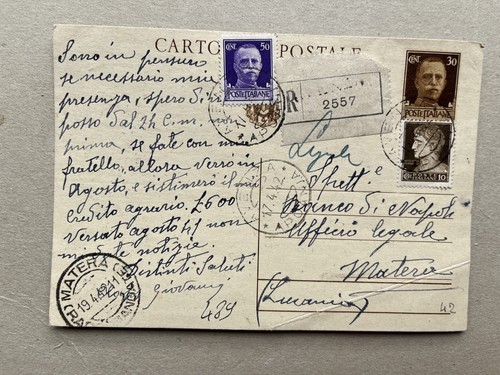 CARTO POSTALE
CENT. 50
POSTE ITALIANE
CENT. 30
POSTE ITALIANE
POSTE
10
R
2557
Sono in persona
se necessario mia
presenza, spero
posto dal 24 c.m. non
prima, se fate con mio
fratello, allora verrò in
Agosto, e sistinerò il
credito agrario. £600
versato agosto 41 non
notizia.
Distinti Saluti
Giovanni
489
Legale
Spett.e
Banco di Napoli
Ufficio legale
Matera
(Lucania)
42
MATERA
19.4.42
17.4.42